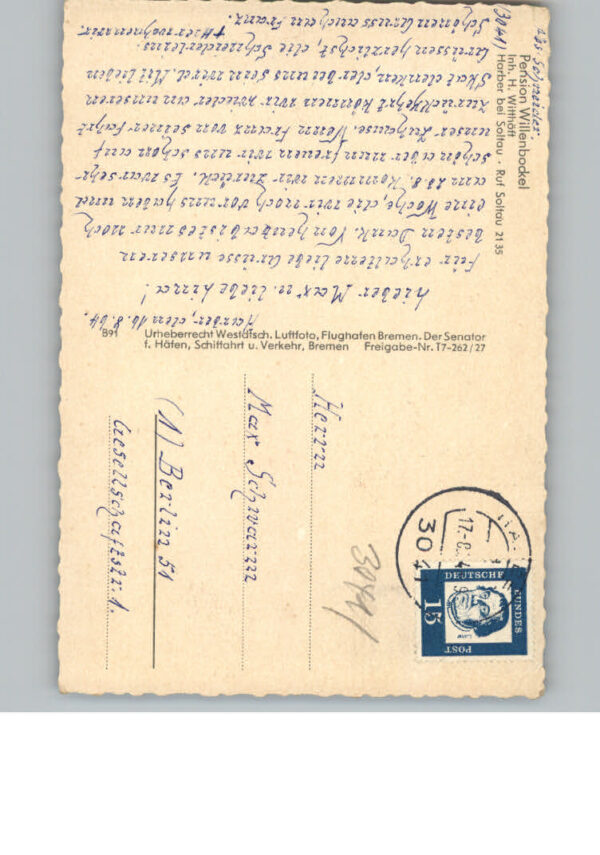 Abs. Schneider.
Pension Willenbockel
Inh. H. Witthöft
Harber bei Soltau · Ruf Soltau 21 35
(3041)
Harber, den 16.8.64.
Lieber Max u. liebe Lina!
Für erhaltene liebe Grüsse unseren
besten Dank. Von heute ab ist es nur noch
eine Woche, die wir noch vor uns haben und
am 23.8. kommen wir zurück. Es war sehr
schön aber nun freuen wir uns schon auf
unser Zuhause. Wenn Franz von seiner Fahrt
zurückgeht können wir wieder an unseren
Skat denken, der bei uns sein wird. Mit lieben
Grüssen herzlichst, die Schneiderleins.
Schönen Gruss auch an Franz.
Hier wohnen wir.
B91
Urheberrecht Westdtsch. Luftfoto, Flughafen Bremen. Der Senator
f. Häfen, Schiffahrt u. Verkehr, Bremen Freigabe-Nr. T7-262/27
Herrn
Max Schwarm
(1) Berlin 51
Gesellschaftstr. 1.
3041
17.-8.
304
DEUTSCHE
BUNDES
POST
15